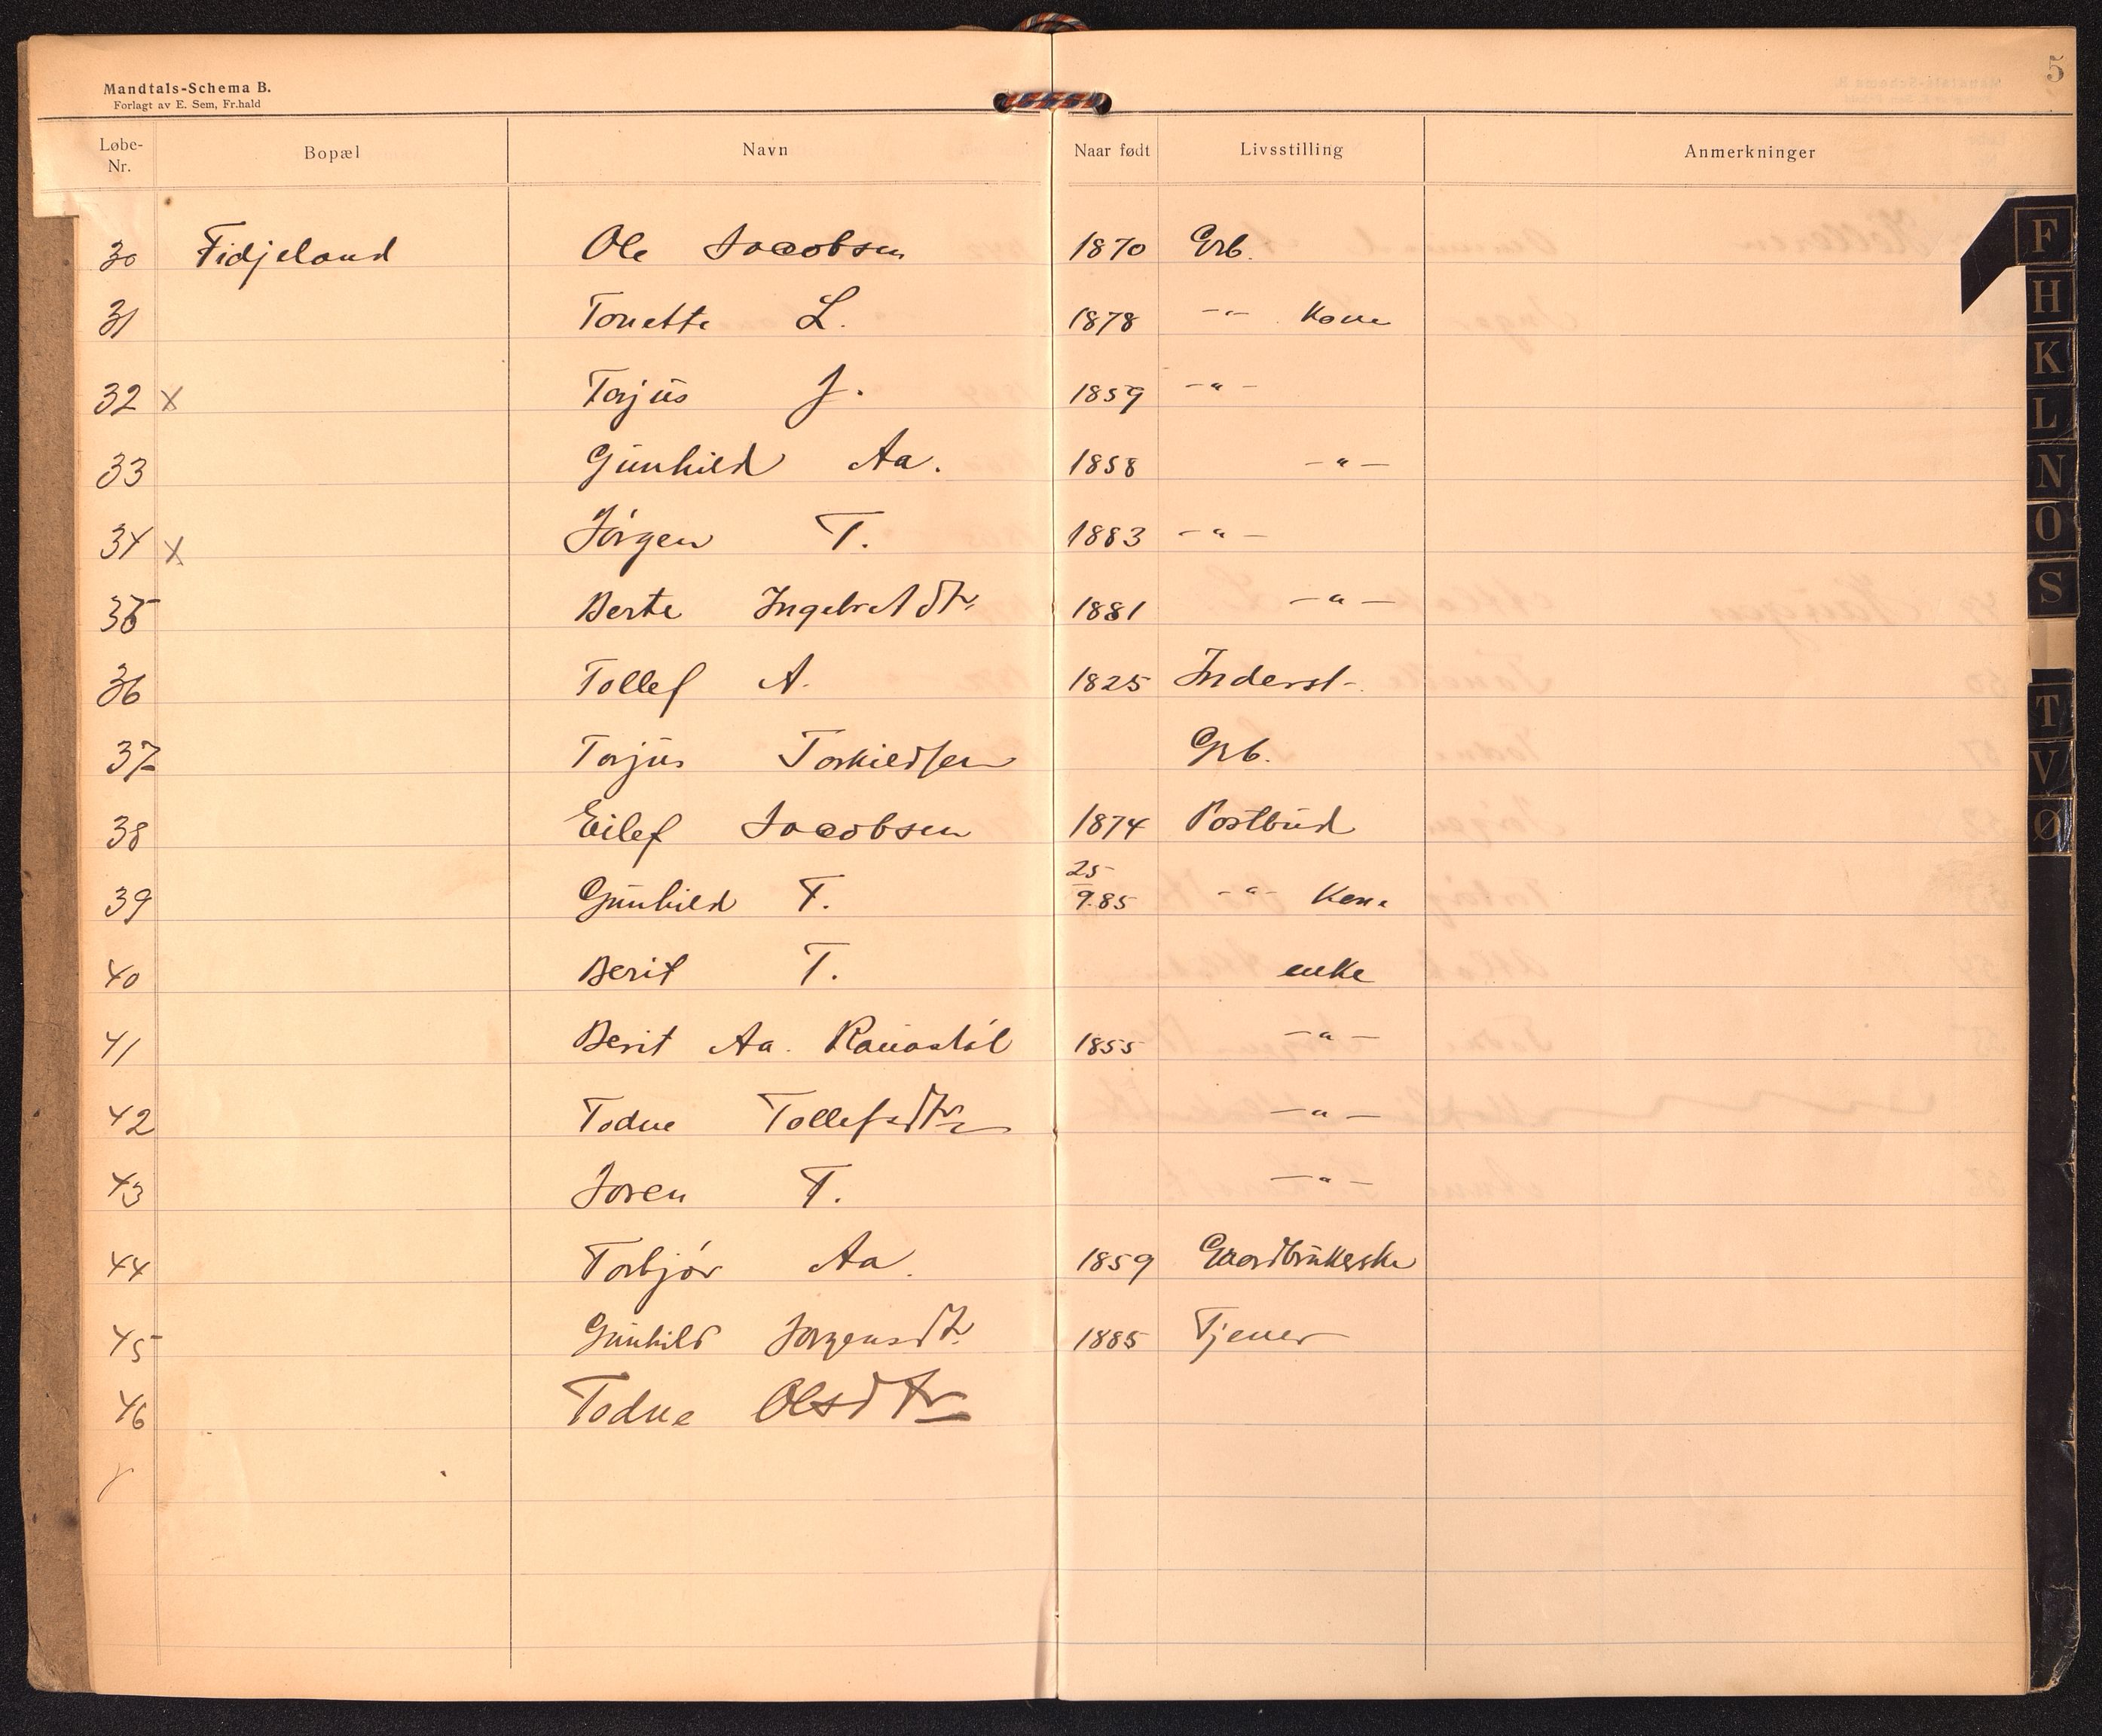 5
Mandtals-Schema B.
Forlagt av E. Sem, Fr.hald
Løbe-Nr. Bopæl Navn Naar født Livsstilling Anmerkninger
30 Fidjeland Ole Jacobsen 1870 Grb.
31 Tonette L. 1878 -"- Kone
32 x Torjus J. 1859 -"-
33 Gunhild Aa. 1858 -"-
34 x Jørgen T. 1883 -"-
35 Berte Ingebretdtr. 1881 -"-
36 Tollef A. 1825 Inderst-
37 Torjus Torkildsen Grb.
38 Eilef Jacobsen 1874 Postbud
39 Gunhild T. 25/9.85 -"- Kone
40 Berit T. enke
41 Berit Aa. 1855 -"-
42 Todne Tollefsdtr -"-
43 Joren T. -"-
44 Torbjør Aa. 1859 Gaardbrukerske
45 Gunhild Jørgensdt. 1885 Tjener
46 Todne Olsdtr
F
H
K
L
N
O
S
T
V
Ø